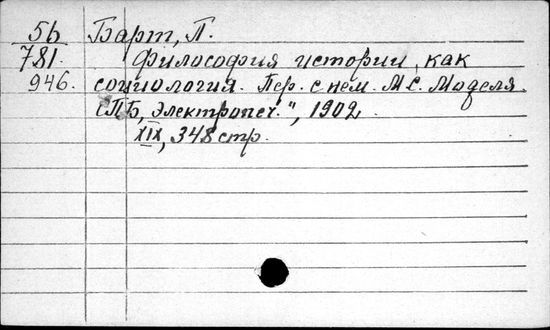 56 Барт, П.
781. Философия истории, как
946. социология. Пер. с нем. М.С. Моделя.
СПБ, "Электропеч.", 1902
XIX, 348 стр.